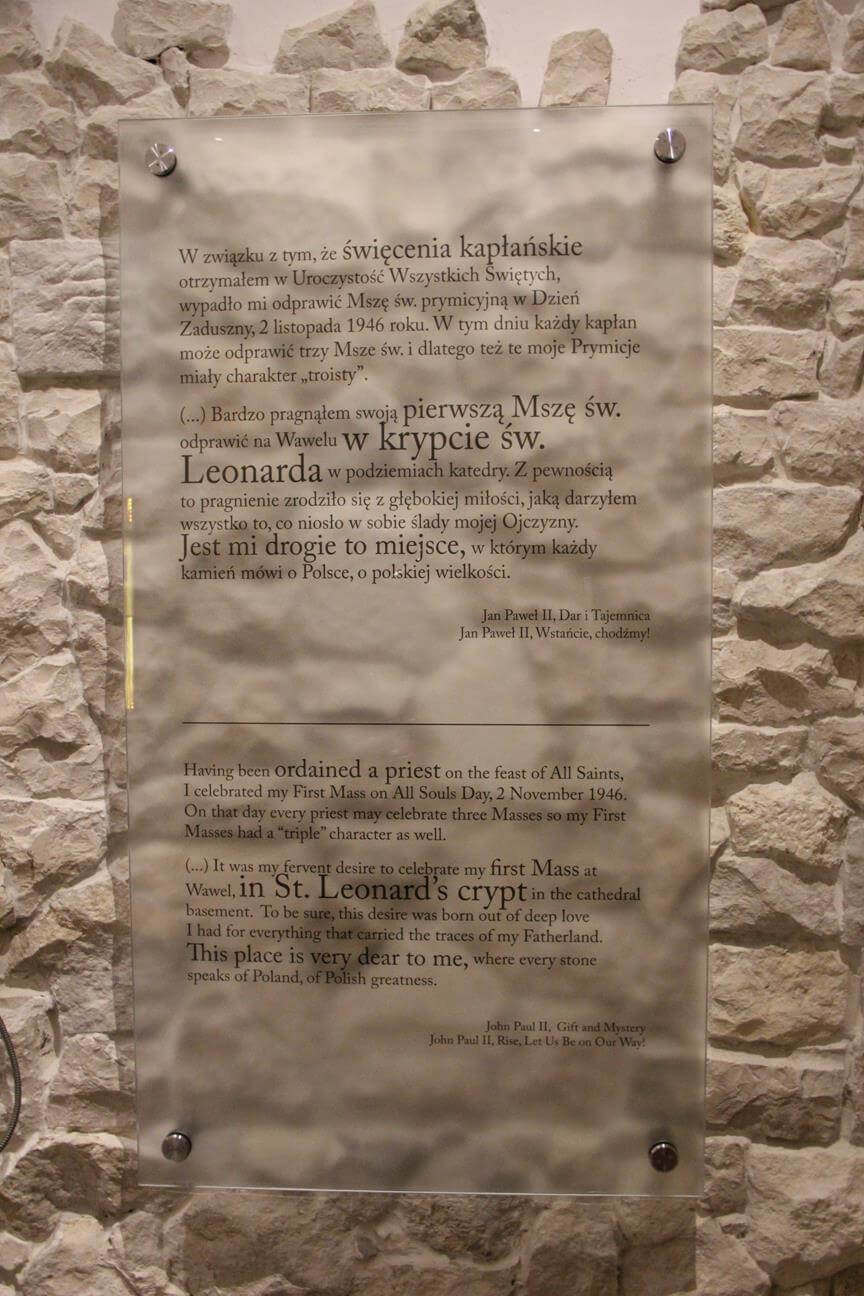 W związku z tym, że święcenia kapłańskie
otrzymałem w Uroczystość Wszystkich Świętych,
wypadło mi odprawić Mszę św. prymicyjną w Dzień
Zaduszny, 2 listopada 1946 roku. W tym dniu każdy kapłan
może odprawić trzy Msze św. i dlatego też te moje Prymicje
miały charakter „troisty”.
(...) Bardzo pragnąłem swoją pierwszą Mszę św.
odprawić na Wawelu w krypcie św.
Leonarda w podziemiach katedry. Z pewnością
to pragnienie zrodziło się z głębokiej miłości, jaką darzyłem
wszystko to, co niosło w sobie ślady mojej Ojczyzny.
Jest mi drogie to miejsce, w którym każdy
kamień mówi o Polsce, o polskiej wielkości.
Jan Paweł II, Dar i Tajemnica
Jan Paweł II, Wstańcie, chodźmy!
Having been ordained a priest on the feast of All Saints,
I celebrated my First Mass on All Souls Day, 2 November 1946.
On that day every priest may celebrate three Masses so my First
Masses had a “triple” character as well.
(...) It was my fervent desire to celebrate my first Mass at
Wawel, in St. Leonard’s crypt in the cathedral
basement. To be sure, this desire was born out of deep love
I had for everything that carried the traces of my Fatherland.
This place is very dear to me, where every stone
speaks of Poland, of Polish greatness.
John Paul II, Gift and Mystery
John Paul II, Rise, Let Us Be on Our Way!